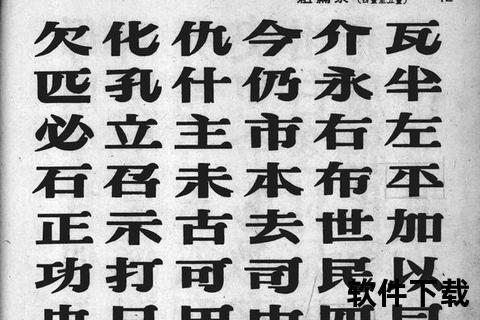 欠化仇今介瓦
匹孔什仍永半
必立主市右左
石召未本布平
正示古去世加
功打可司民以
软件下载